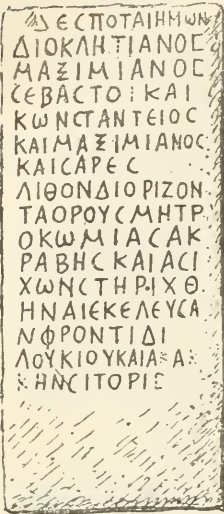 ΔΕСΠΟΤΑΙΗΜΩΝ
ΔΙΟΚΛΗΤΙΑΝΟС
ΜΑΞΙΜΙΑΝΟС
СΕΒΑСΤΟΙΚΑΙ
ΚΩΝСΤΑΝΤΕΙΟС
ΚΑΙΜΑΞΙΜΙΑΝΟС
ΚΑΙСΑΡΕС
ΛΙΘΟΝΔΙΟΡΙΖΟΝ
ΤΑΟΡΟΥСΜΗΤΡ
ΟΚΩΜΙΑСΑΚ
ΡΑΒΗСΚΑΙΑСΙ
ΧΩΝСΤΗΡΙΧΘ
ΗΝΑΙΕΚΕΛΕΥСΑ
ΝΦΡΟΝΤΙΔΙ
ΛΟΥΚΙΟΥΚΑΙΑ Α
ΚΗΝСΙΤΟΡΙС